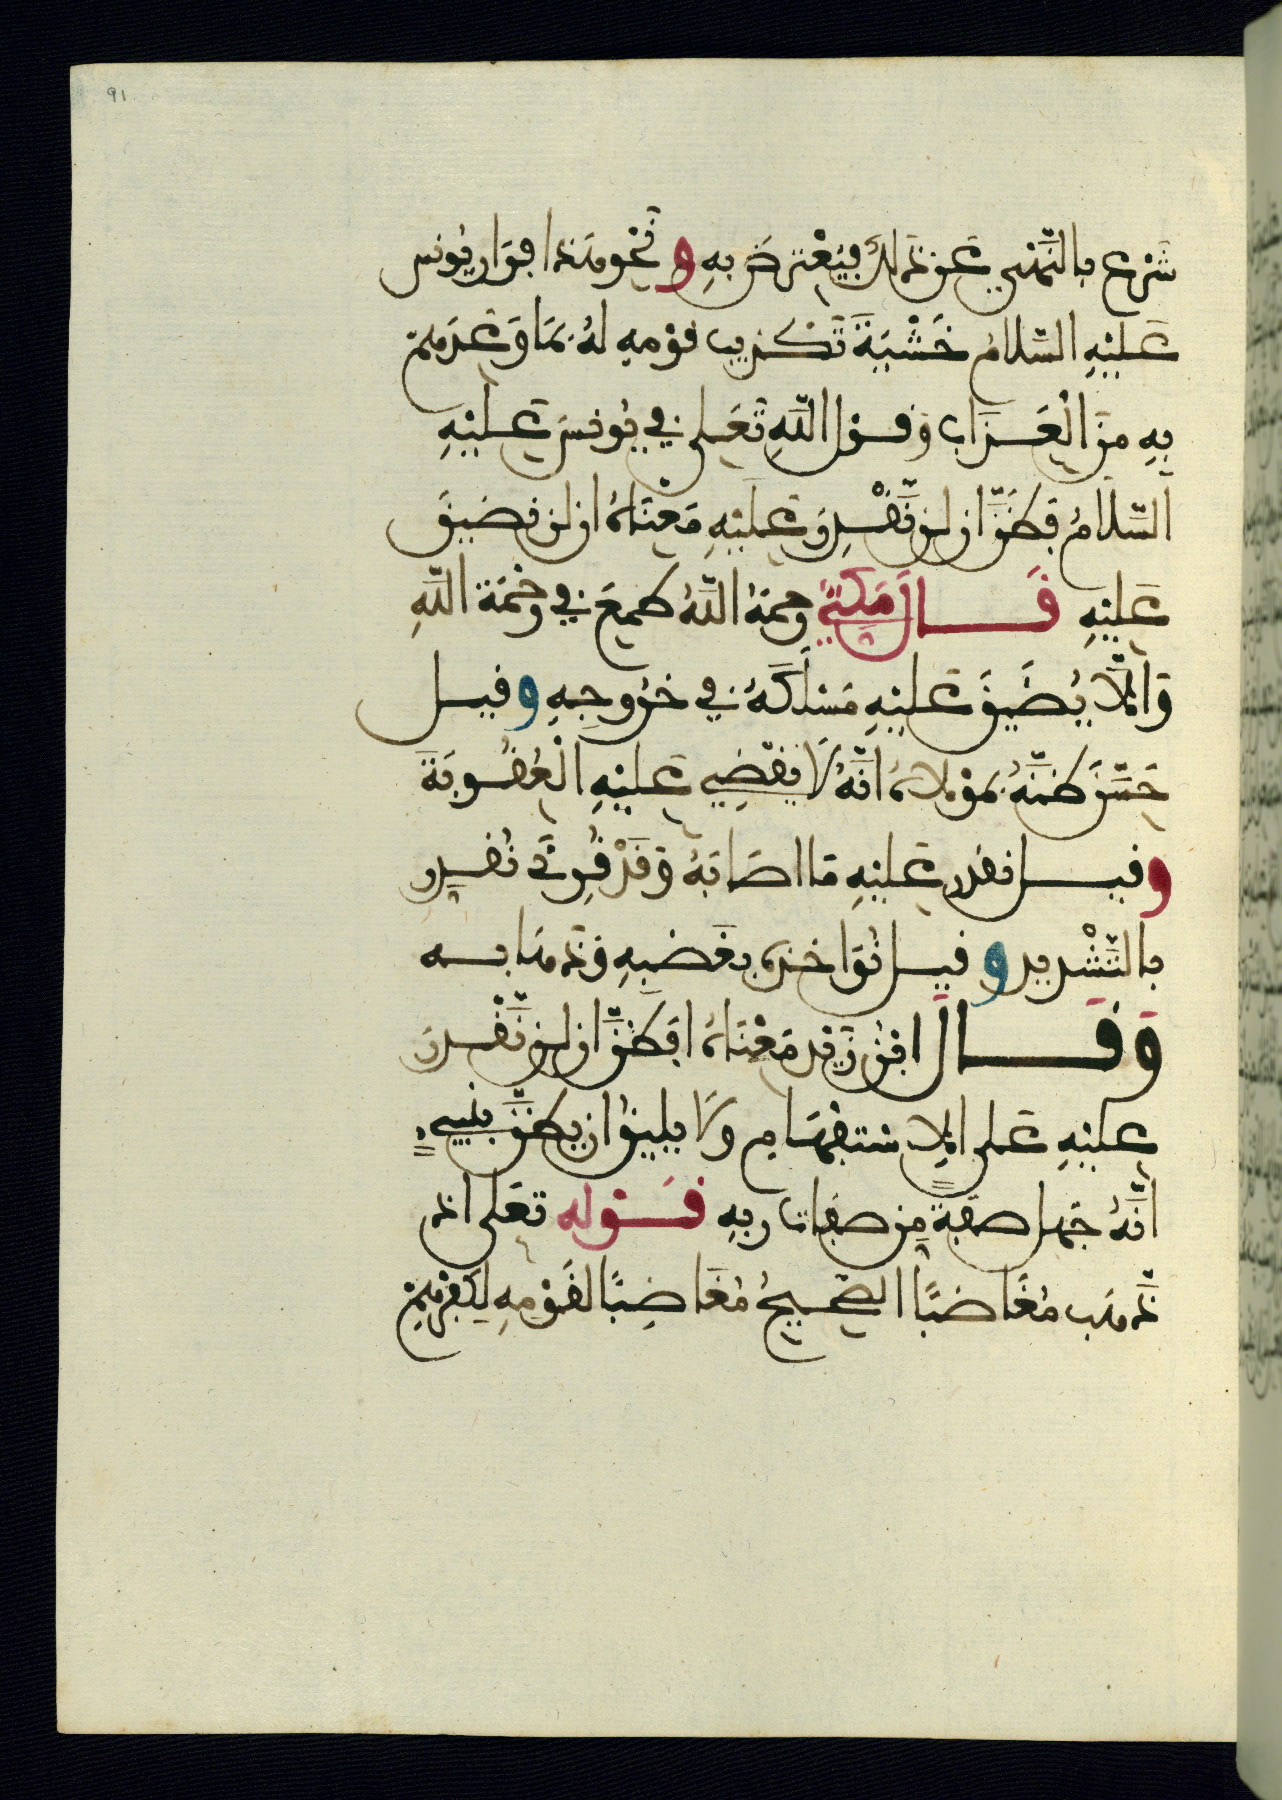 91
شَرْع بالنَّهْيِ عَن ذَلك فيَعْترضُ بهِ وَنَحْو هَذا فِرَار يُونس
عَلَيْهِ السَّلَامُ خَشْيَةَ تَكْذيب قَوْمهِ لهُ بمَا وَعَدَهمْ
بِهِ منَ الْعَذَاب وَقول اللَّهِ تَعَلى في يُونسَ عَليْهِ
السَّلَامُ فظَنَّ ان لن نَّقْدِرَ عَليْهِ مَعْنَاهُ ان لن نضيقَ
عَليْهِ قَالَ مَكِّيٌّ رحمَهُ اللَّهُ طمِعَ في رحْمَة اللَّهِ
وَالَّا يُضَيقَ عَليْهِ مَسْلَكَهُ في خرُوجِهِ وقيل
حَسَّنَ ظنَّهُ بمَوْلاهُ انَّهُ لَا يقْضِي عَليْهِ الْعُقُوبَةَ
وقيل نقدر عَليْهِ مَا اصَابَهُ وَقَدْ قُرِئَ نُقدِّر
بالتَّشْديد وقيل نُوَاخذهُ بغَضبهِ وَذهَابه
وَقَالَ ابْن زَيْد مَعْنَاهُ افظَنَّ ان لن نَّقْدرَ
عَليْهِ عَلى الاِسْتفْهَامِ وَلَا يليقُ ان يظنَّ بنَبيءٍ
انَّهُ جَهل صفَةً مِن صفَات ربهِ قَوْله تعَلى اذ
ذَّهَب مُغَاضبًا الصَّحيحُ مُغَاضِبًا لقَوْمهِ لكُفْرهِمْ